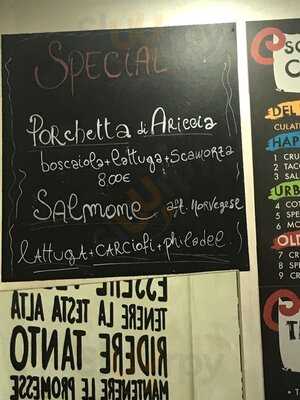 SPECIAL
PORCHETTA di ARICCIA
boscaiola+lattuga+scamorza
8.00€
SALMONE aff. NORVEGESE
LATTUGA+CARCIOFI+philadel.
TENERE LA TESTA ALTA
RIDERE TANTO
MANTENERE LE PROMESSE
DEL
CULAT
HAP
1 CRU
2 TAC
3 SAL
URB
4 COT
5 SPE
6 MO
OLD
7 CR
8 SP
9 CR